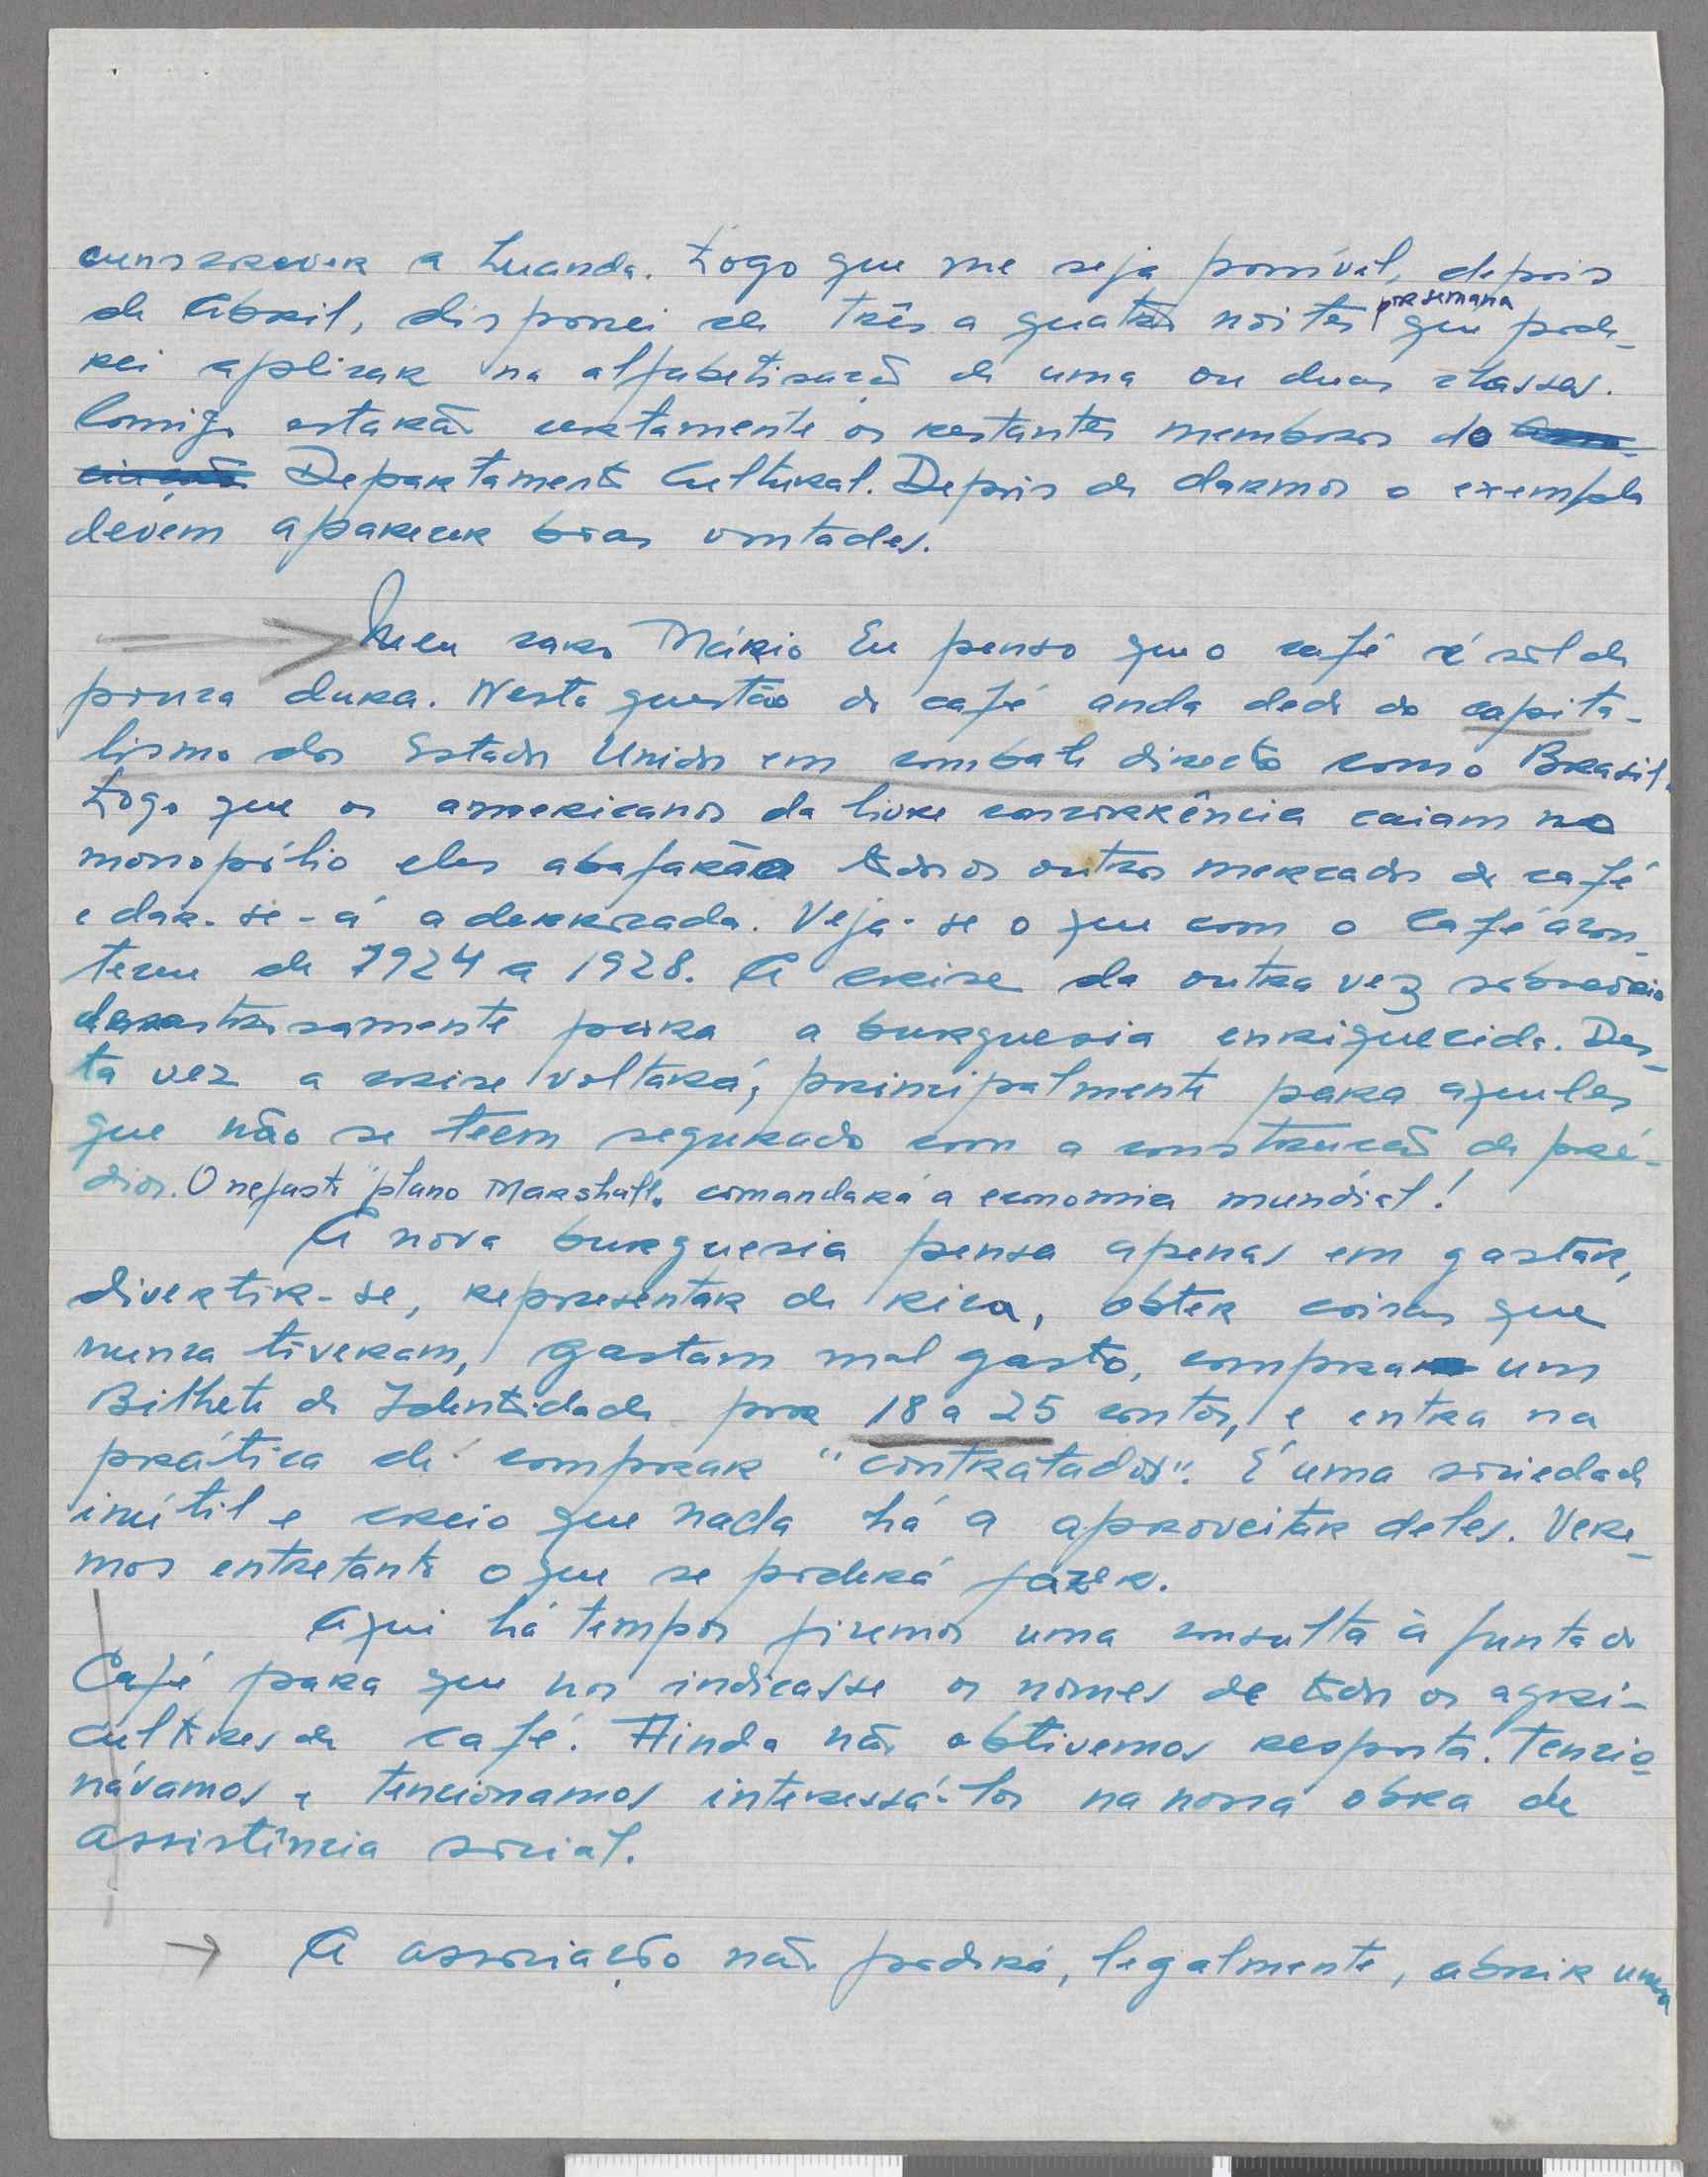 cunscrever a Luanda. Logo que me seja possível, depois
de Abril, disporei de três a quatro noites por semana que pode-
rei aplicar na alfabetisação de uma ou duas classes.
Comigo estarão certamente os restantes membros do
Departamento Cultural. Depois de darmos o exemplo
devem aparecer boas vontades.
Meu caro Mário Eu penso que o café é sol de
pouca dura. Nesta questão do café anda dedo do capita-
lismo dos Estados Unidos em combate directo com o Brasil.
Logo que os americanos da livre concorrência caiam no
monopólio eles abafarão todos os outros mercados de café
e dar-se-á a derrocada. Veja-se o que com o café acon-
teceu de 1924 a 1928. A crise da outra vez sobreveio
desastrosamente para a burguesia enriquecida. Des-
ta vez a crise voltará, principalmente para aqueles
que não se teem segurado com a construção de pré-
dios. O nefasto "plano Marshall" comandará a economia mundial!
A nova burguesia pensa apenas em gastar,
divertir-se, representar de rica, obter coisas que
nunca tiveram, gastam mal gasto, compra um
Bilhete de Identidade por 18 a 25 contos, e entra na
prática de comprar "contratados". É uma sociedade
inútil e creio que nada há a aproveitar deles. Vere-
mos entretanto o que se poderá fazer.
Aqui há tempos fizemos uma consulta à Junta do
Café para que nos indicasse os nomes de todos os agri-
cultores de café. Ainda não obtivemos resposta. Tencio-
návamos e tencionamos interessá-los na nossa obra de
assistência social.
→ A associação não poderá, legalmente, abrir uma